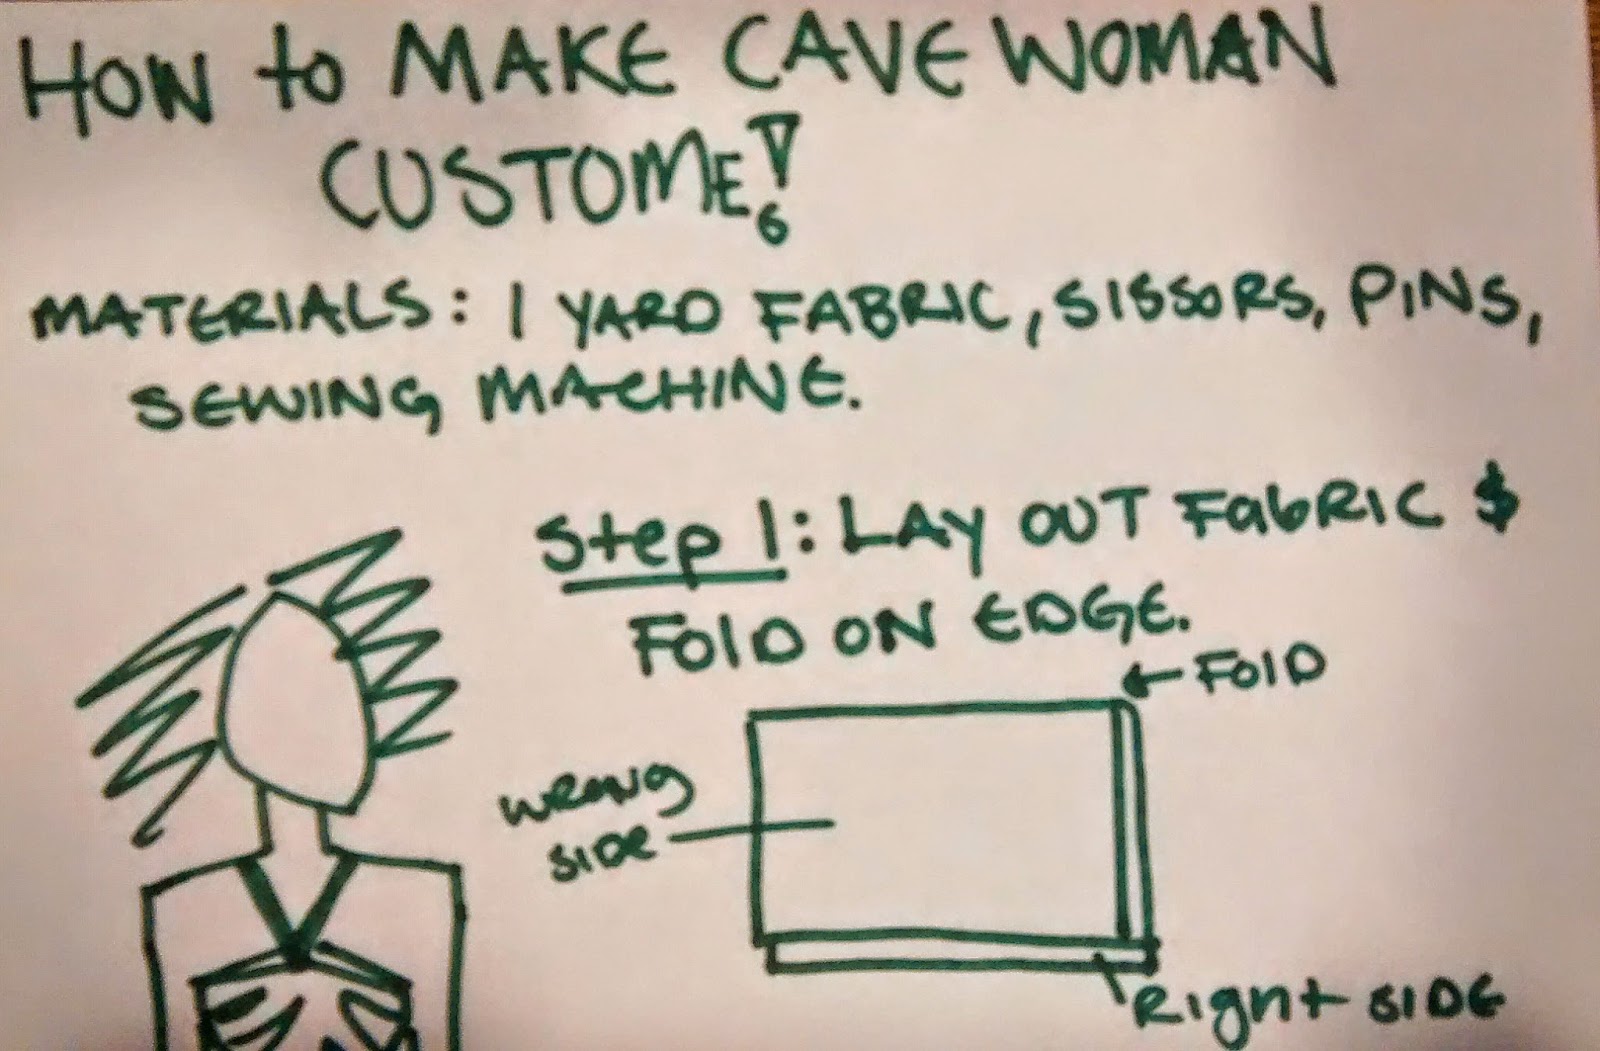 HOW to MAKE CAVE WOMAN
CUSTOME!
MATERIALS: 1 YARD FABRIC, SISSORS, PINS,
SEWING MACHINE.
Step 1: LAY OUT FABRIC $
FOLD ON EDGE.
← FOLD
WRONG
SIDE
RIGHT SIDE